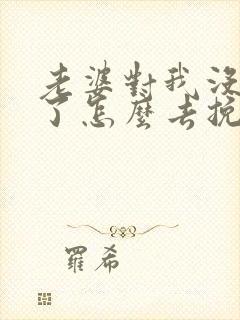 老婆對我沒
了怎麼去挽
羅希